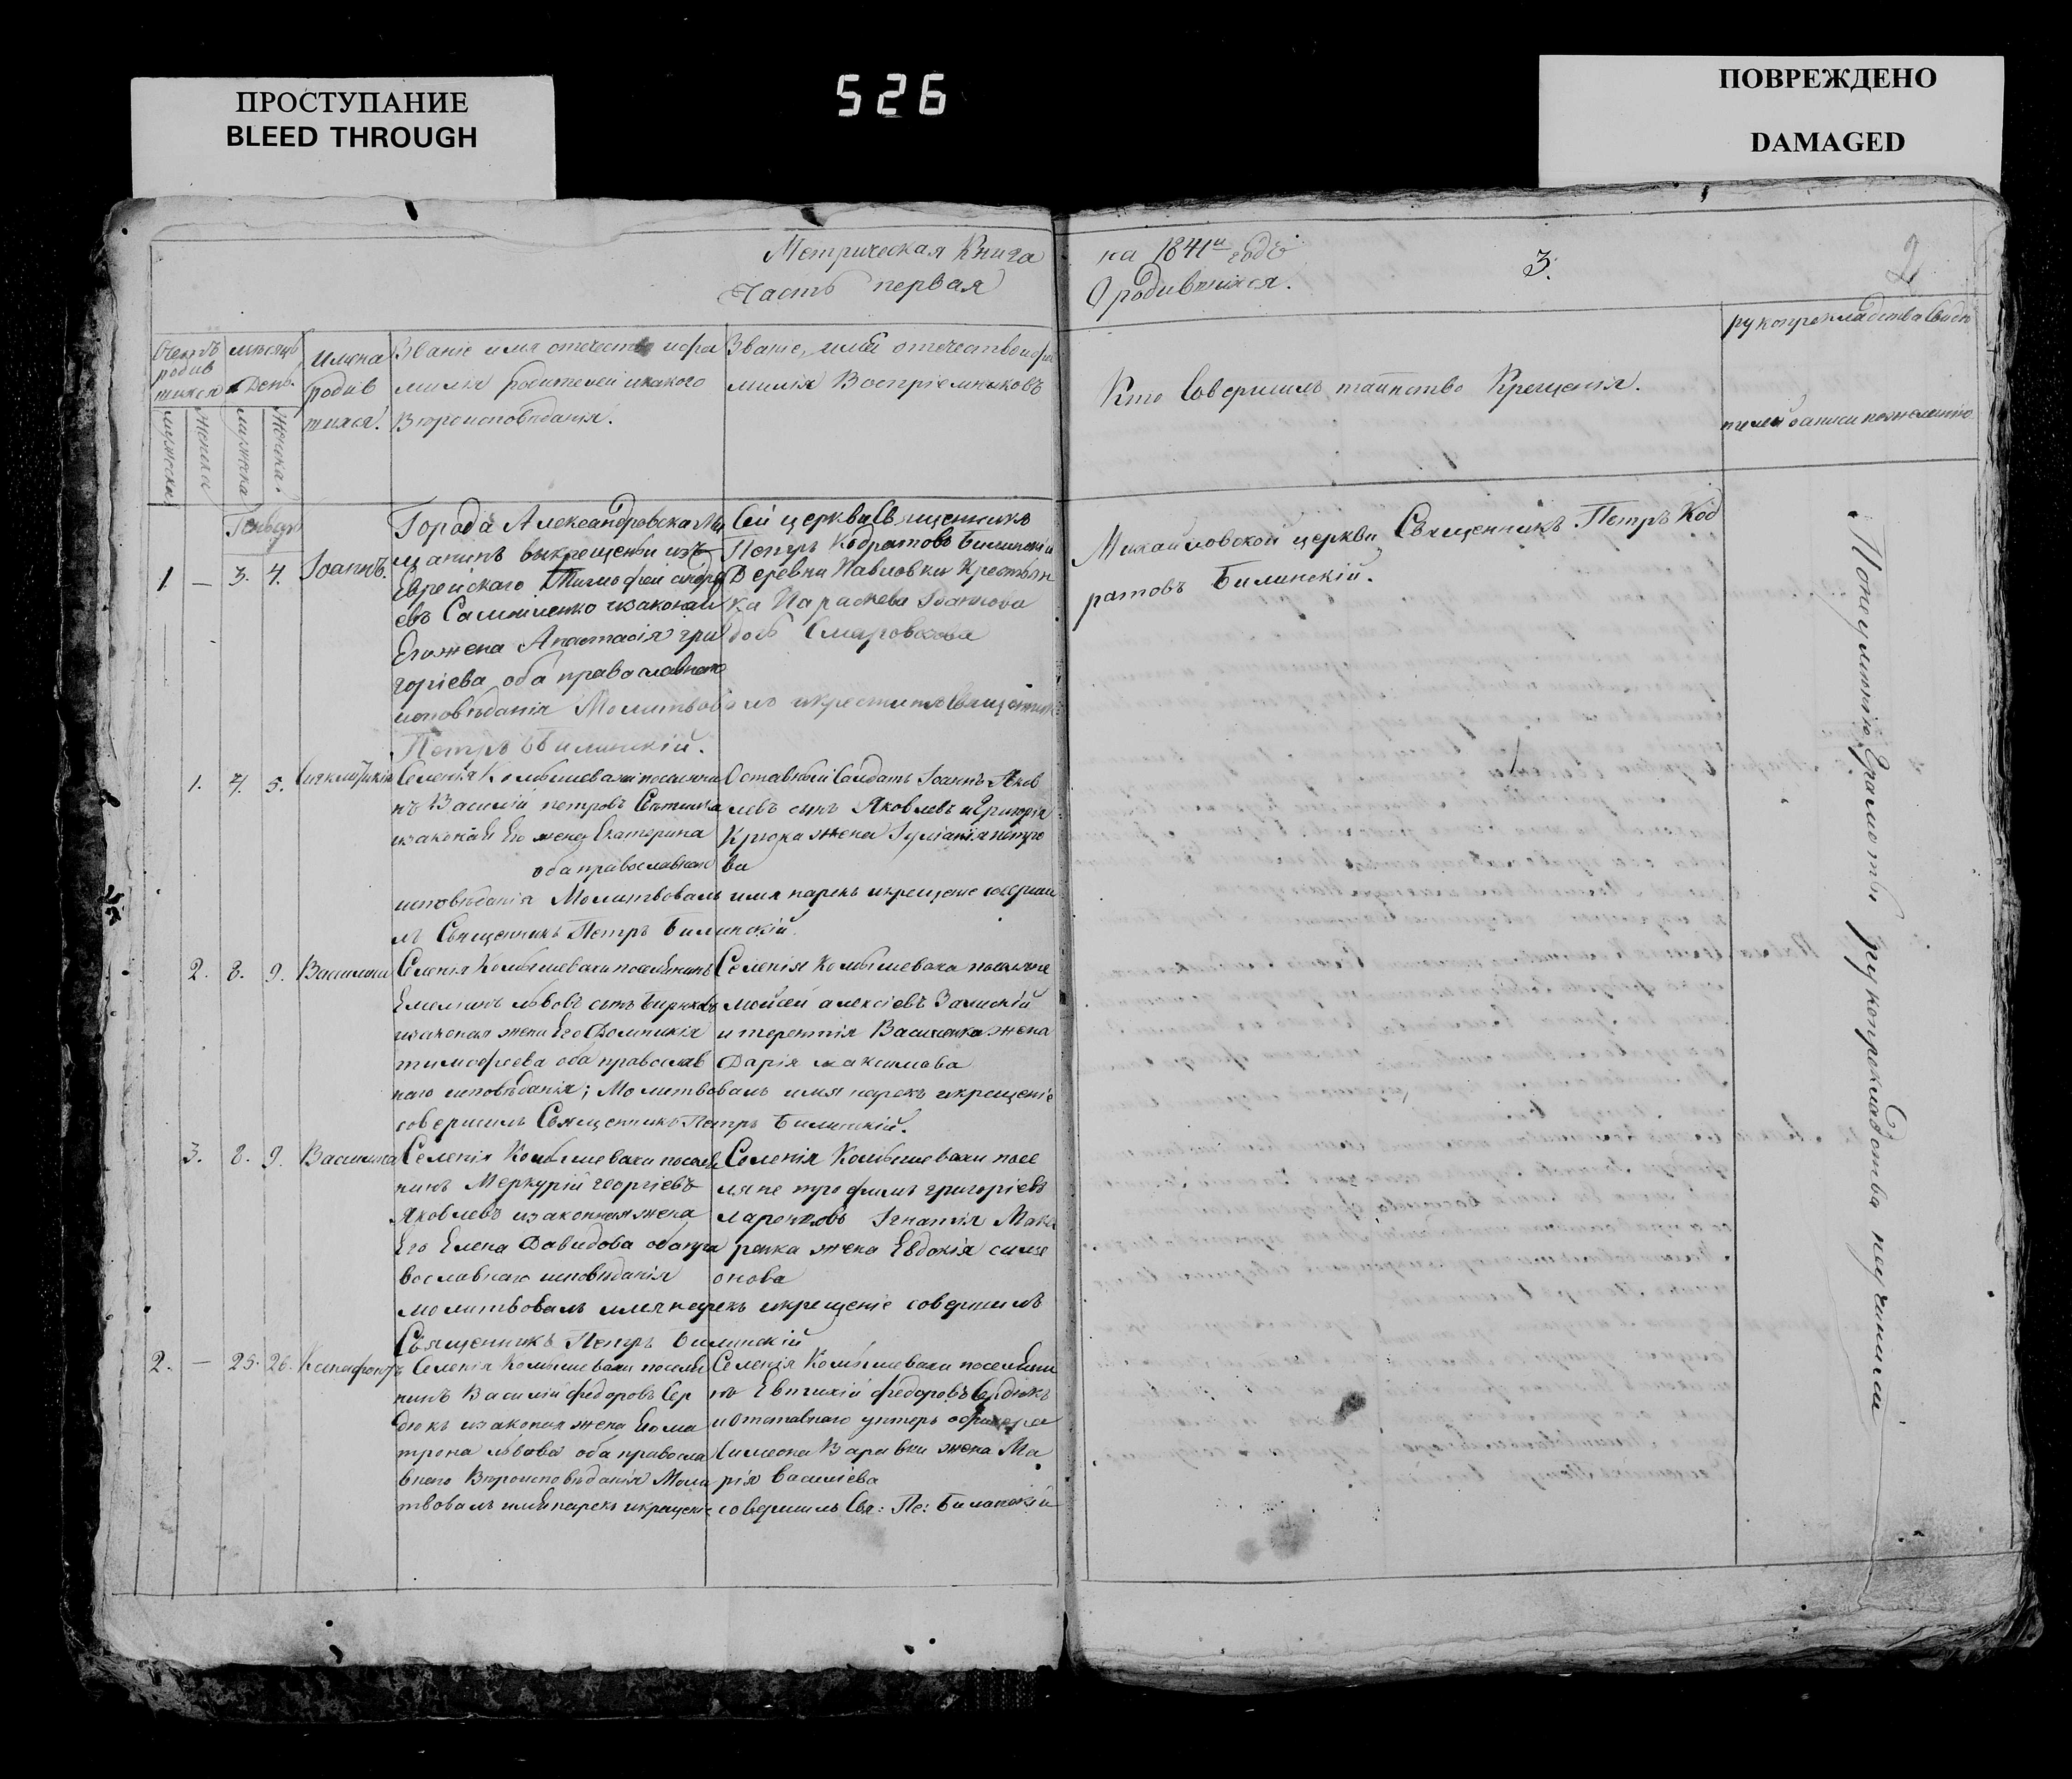 ПРОСТУПАНИЕ
BLEED THROUGH
526
ПОВРЕЖДЕНО
DAMAGED
Метрическая Книга
Часть первая
на 1841й годъ
О родившихся.
3.
2
Счетъ родив шихся
мѣсяцъ и День.
Имена родив шихся.
Званіе имя отечество и фа
милія родителей и какого
Вѣроисповѣданія.
Званіе, имя отечество и фа
милія Воспріемниковъ
Кто Совершилъ таинство Крещенія.
рукоприкладства Свидѣ
телей записи по желанію
мужеска
женска
мужеска
женска.
Генварь
1 — 3. 4. Іоаннъ.
Города Александровска Мѣ
щанинъ выкрещенный изъ
Еврейскаго Тимофей андре
евъ и законная
Его жена Анастасія гри
горіева оба православнаго
исповѣданія Молитвовалъ и крестилъ Священникъ
Петръ Билинскій.
Сей церкви Священникъ
Петръ Кодратовъ Билинскій
Деревни Павловки Крестьян
ка Параскева Іоаннова
Михайловской церкви Священникъ Петръ Код
ратовъ Билинскій.
1. 4. 5. Синклитикія
Селенія Комышевахи поселяни
нъ Василій петровъ
и законная Его жена Екатерина
оба православнаго
исповѣданія Молитвовалъ имя нарекъ и крещеніе соверши
лъ Священникъ Петръ Билинскій.
Оставный Солдатъ Іоаннъ Яков
левъ сынъ Яковлевъ и Григорія
Крюка жена Іуліанія петро
ва
2. 8. 9. Василиса
Селенія Комышевахи поселянинъ
Емеліанъ львовъ сынъ Бирюковъ
и законная жена Его Домникія
тимофеева оба православ
наго исповѣданія; Молитвовалъ имя нарекъ и крещеніе
совершилъ Священникъ Петръ Билинскій.
Селенія Комышеваха поселяне
моисей алексіевъ
и терентія Василенка жена
Дарія максимова
3. 8. 9. Василиса
Селенія Комышевахи поселя
нинъ Меркурій георгіевъ
Яковлевъ и законная жена
Его Елена Давидова оба пра
вославнаго исповѣданія
молитвовалъ имя нарекъ и крещеніе совершилъ
Священникъ Петръ Билинскій
Селенія Комышевахи посе
ляне трофимъ григоріевъ
ларенковъ Игнатія Мака
ренка жена Евдокія симе
онова
2. — 25. 26. Ксенофонтъ
Селенія Комышевахи поселя
нинъ Василій федоровъ Сер
дюкъ и законная жена Его ма
трона львова оба правосла
внаго Вѣроисповѣданія Моли
твовалъ имя нарекъ и крещеніе совершилъ Свя: Пе: Билинскій
Селенія Комышевахи поселяни
нъ Евтихій федоровъ Сердюкъ
и Отставнаго унтеръ офицера
Симеона Варавки жена Ма
рія Василіева
По неумѣнію Грамоты рукоприкладства неучинили